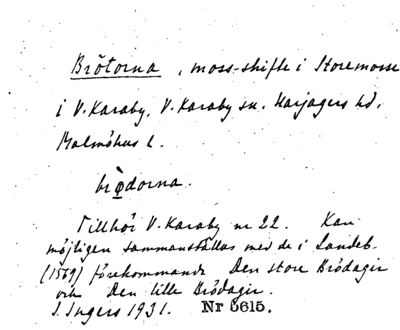 Brötorna, mosskifte i Storemosse
i V. Karaby, V. Karaby sn. Harjagers hd,
Malmöhus l.
brødorna.
Tillhör V. Karaby nr 22. Kan
möjligen sammanställas med de i Landeb.
(1569) förekommande Den store Brödagir
och Den lille Brödagir.
I. Ingers 1931. Nr 5615.